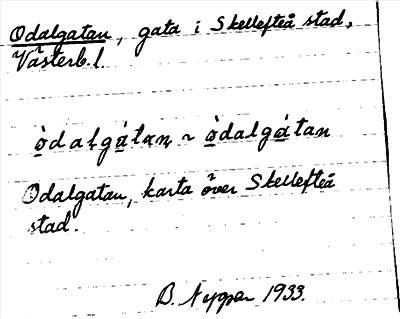 Odalgatan, gata i Skellefteå stad,
Västerb. l.
ò̲dalgá̲tan ~ ò̲dalgá̲tan
Odalgatan, karta över Skellefteå
stad.
B. 1933.